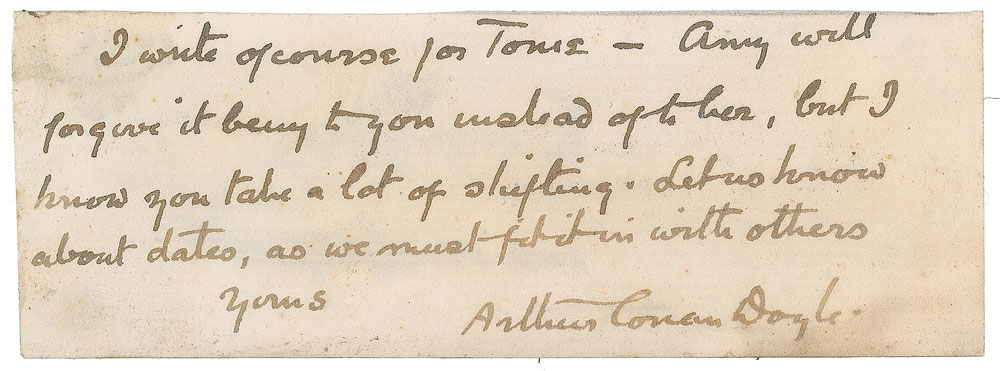 I write of course for Touie – Amy will
forgive it being to you instead of to her, but I
know you take a lot of shifting. Let us know
about dates, as we must fit it in with others
Yours
Arthur Conan Doyle.